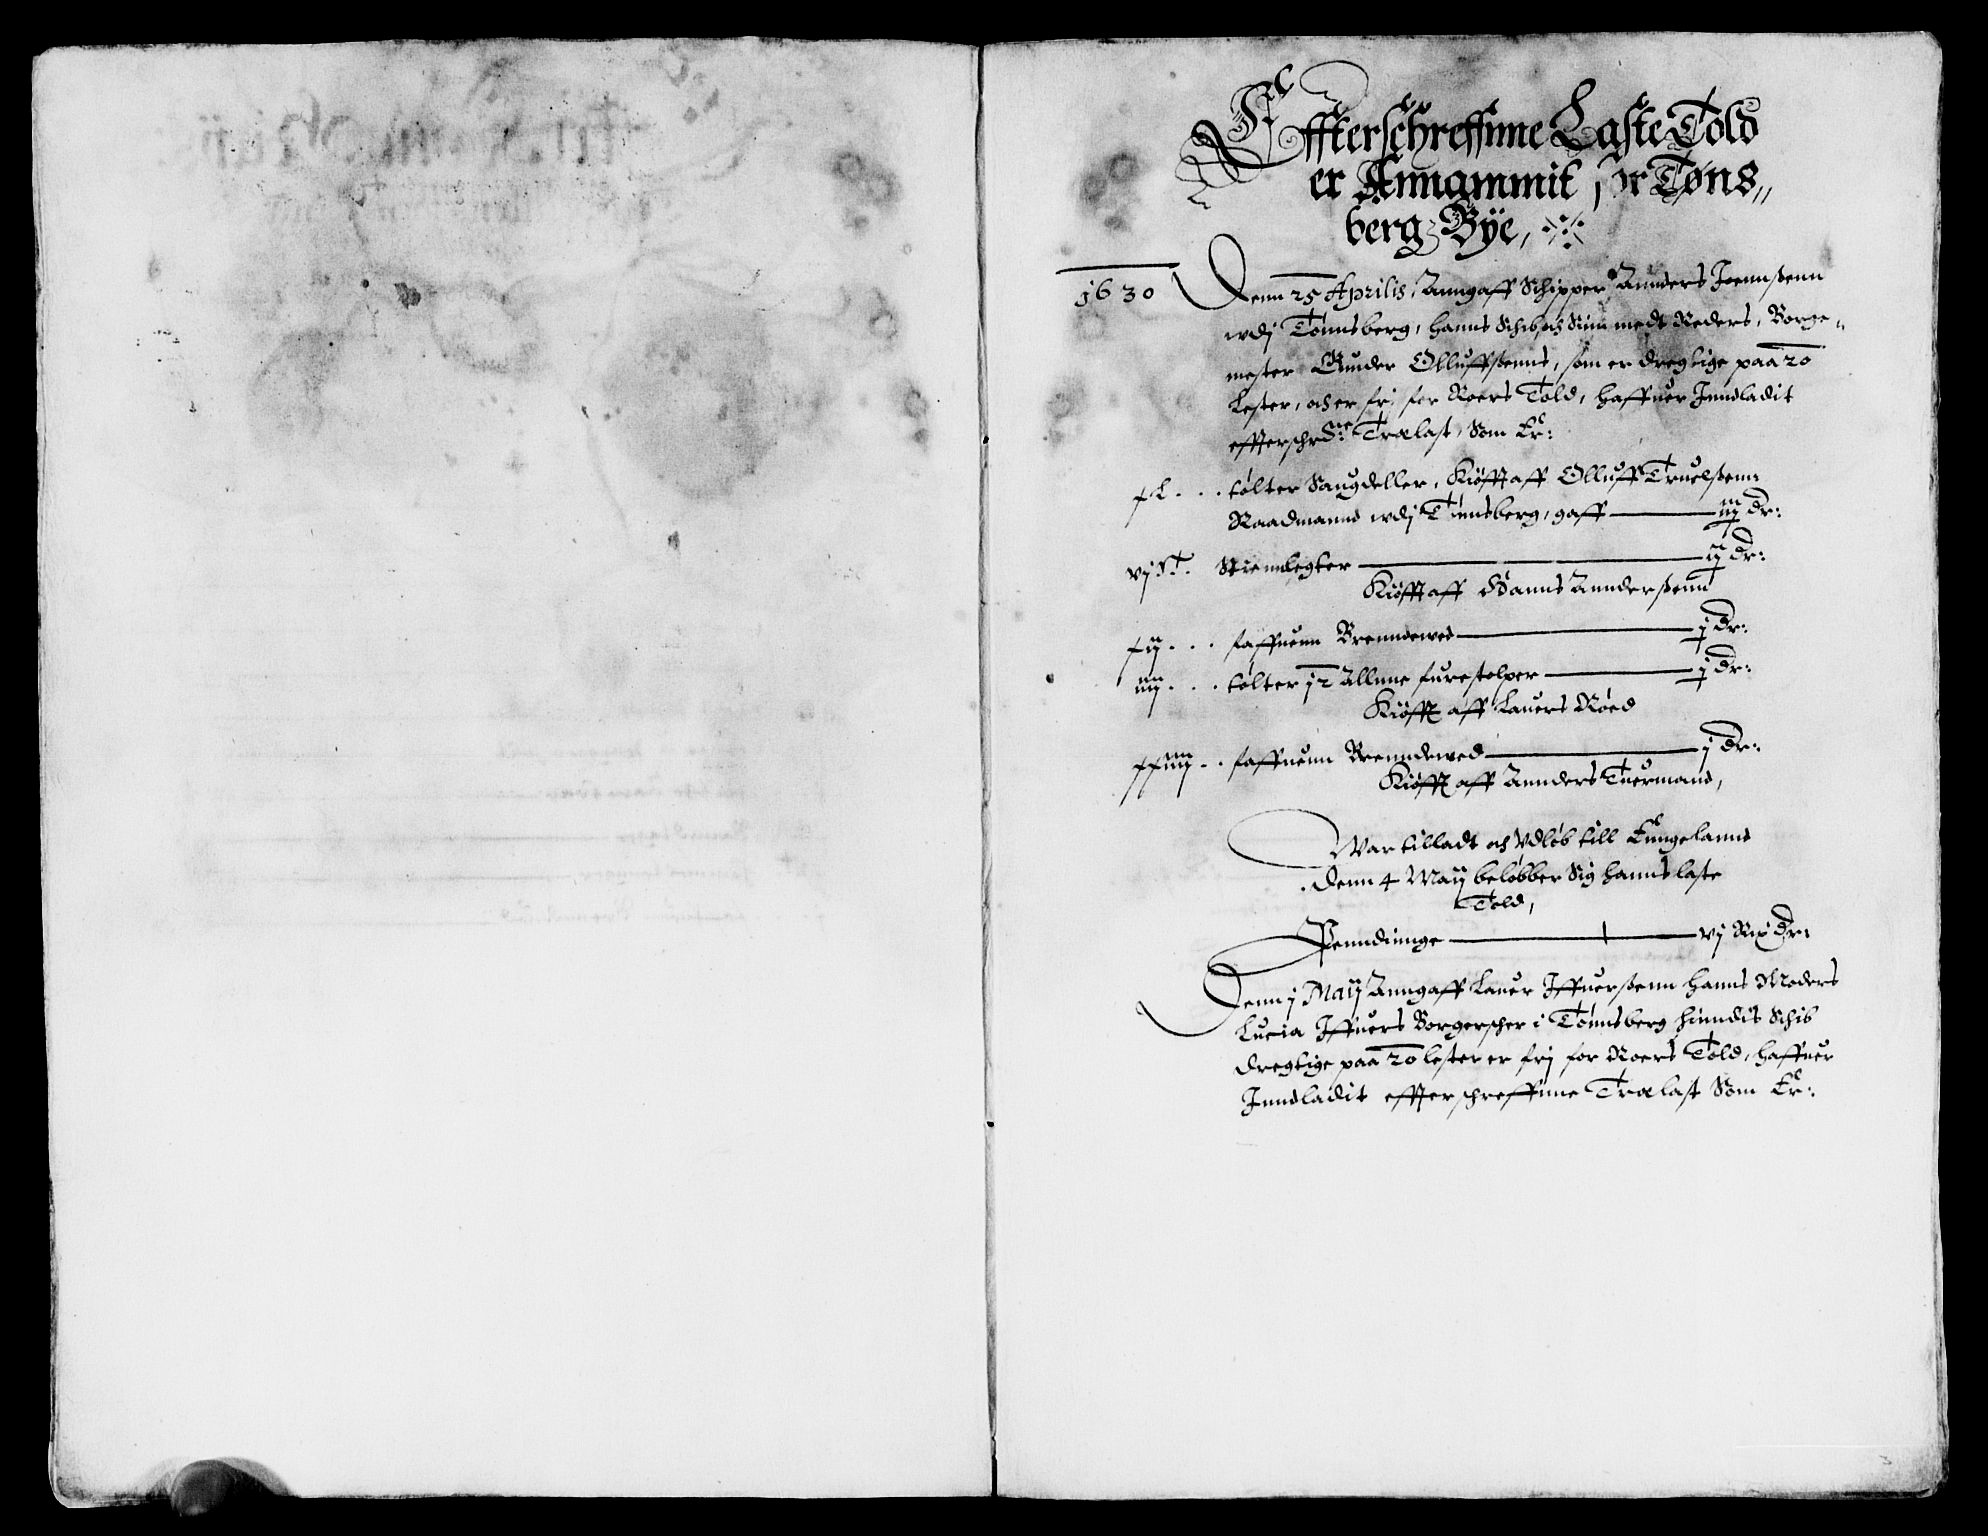 Effterschreffnne Laste Told
er Annammit for Tøns„
berg Bÿe,
1630
Denn 25 Aprilis, Anngaff Schipper Annders Joennßenn
wdj Tønnsberg, hanns Schib, och Sinn medt Reders, Borge„
mester Gunder Olluffßenns, som er dregtige paa 20
Lester, och er frj for Roers Told, haffuer Inndladit
effterschrdne: Trælast, Som Er:
xL . . . tølter Saugdeller, Kiøfft aff Olluff Truelßenn
Raadmannd wdj Tønnsberg, gaff iij dr:
vj St. Ståenndlegter ij dr:
Kiøfft aff Hanns Annderßenn
xij . . . faffnenn Brenndewed j dr:
iiij . . . tølter 12 Allnne furestolper j dr:
Kiøfft aff Lauers Røed
xxiiij . . faffnenn Brenndewed j dr:
Kiøfft aff Annders Tuermand,
War tilladt och Vdløb till Enngelannd
denn 4 Maÿ beløbber Sig hanns laste
Told,
Penndinnge vj Rix dr:
Denn j Maÿ Anngaff Lauer Iffuerßenn hanns Moders
Lucia Iffuers Borgerscher i Tønnsberg hinndis Schib
dregtige paa 20 lester er frj for Roers Told, haffuer
Inndladit effterschreffnne Trælast Som Er: